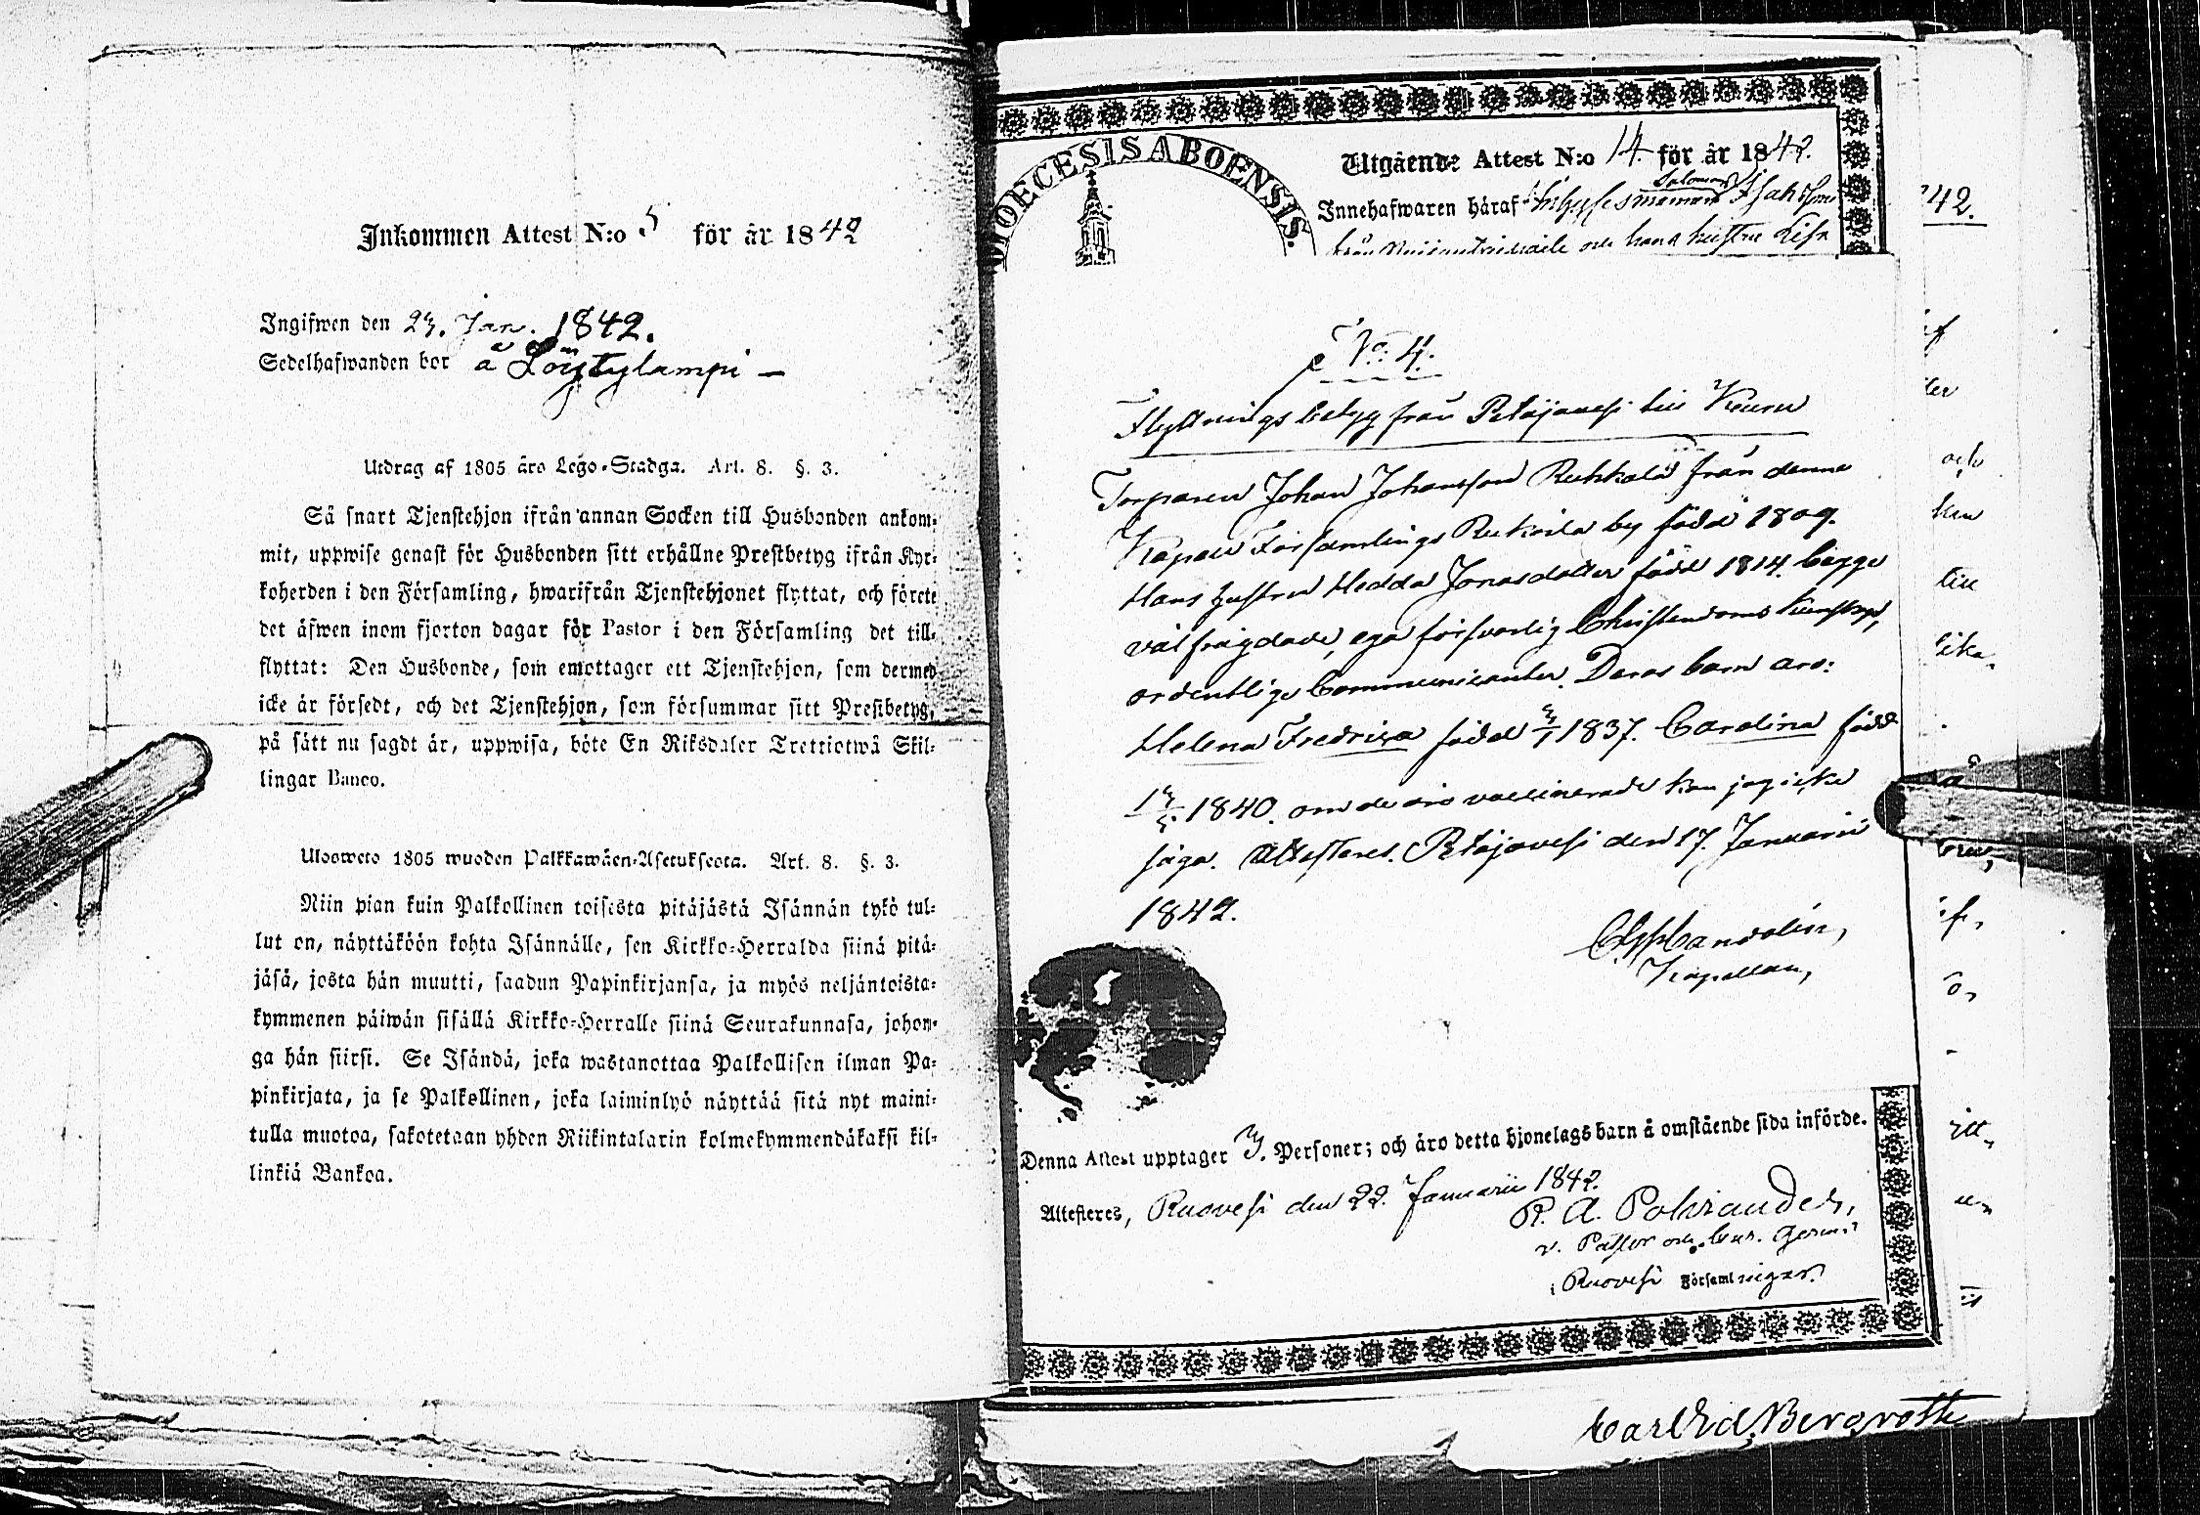 Inkommen Attest N:o 5 för år 1842
Ingifwen den 23. Jan. 1842.
Sedelhafwanden bor å Löytylampi –
Utdrag af 1805 års Lego-Stadga. Art. 8. §. 3.
Så snart Tjenstehjon ifrån annan Socken till Husbonden ankom-
mit, uppwise genast för Husbonden sitt erhållne Prestbetyg ifrån Kyr-
koherden i den Församling, hwarifrån Tjenstehjonet flyttat, och förete
det äfwen inom fjorton dagar för Pastor i den Församling det till-
flyttat: Den Husbonde, som emottager ett Tjenstehjon, som dermed
icke är försedt, och det Tjenstehjon, som försummar sitt Prestbetyg,
på sätt nu sagdt är, uppwisa, böte En Riksdaler Trettiotwå Skil-
lingar Banco.
Ulosweto 1805 wuoden Palkkawäen-Asetuksesta. Art. 8. §. 3.
Niin pian kuin Palkollinen toisesta pitäjästä Isännän tykö tul-
lut on, näyttäköön kohta Isännälle, sen Kirkko-Herralda siinä pitä-
jäsä, josta hän muutti, saadun Papinkirjansa, ja myös neljäntoista-
kymmenen päiwän sisällä Kirkko-Herralle siinä Seurakunnasa, johon-
ga hän siirsi. Se Isändä, joka wastanottaa Palkollisen ilman Pa-
pinkirjata, ja se Palkollinen, joka laiminlyö näyttää sitä nyt maini-
tulla muotoa, sakotetaan yhden Riikintalarin kolmekymmendäkaksi kil-
linkiä Bankoa.
DIOECESIS ABOENSIS.
Utgående Attest N:o 14. för år 1842.
Innehafwaren häraf Inhysesmannen Salomon Isaksson
från och hans hustru Lisa
No: 4.
Flyttnings betyg från Petäjävesi till Keuru
Torparen Johan Johansson Ruhkala från denne
Kapell Församlings by född 1809.
Hans hustru Hedda Jonasdotter född 1814. begge
välfrägdade, ega försvarlig Christendoms kunskap,
ordentlige Communicanter. Deras barn äro:
Helena Fredrica född 3/1 1837. Carolina född
1840. om de äro vaccinerade kan jag icke
säga. Attesteres. Petäjävesi den 17. Januarii
1842.
Kapellan,
Denna Attest upptager 3. Personer; och äro detta hjonelags barn å omstående sida införde.
Attesteres, Ruovesi den 22. Januarii 1842.
R. A. Polviander,
v. Pastor
i Ruovesi Församlingar.
42.
och
kan
till
Carl Ed. Bergroth